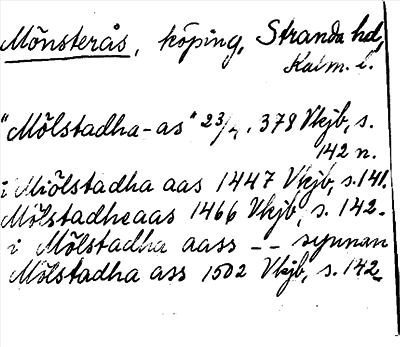 Mönsterås, köping, Stranda hd,
Kalm. l.
"Mölstadha-as" 23/4 . 378 Vkjb, s.
142 n.
i Miölstadha aas 1447 Vkjb, s. 141.
Mölstadheaas 1466 Vkjb, s. 142.
i Mölstadha aass -- synnan
Mölstadha ass 1502 Vkjb, s. 142